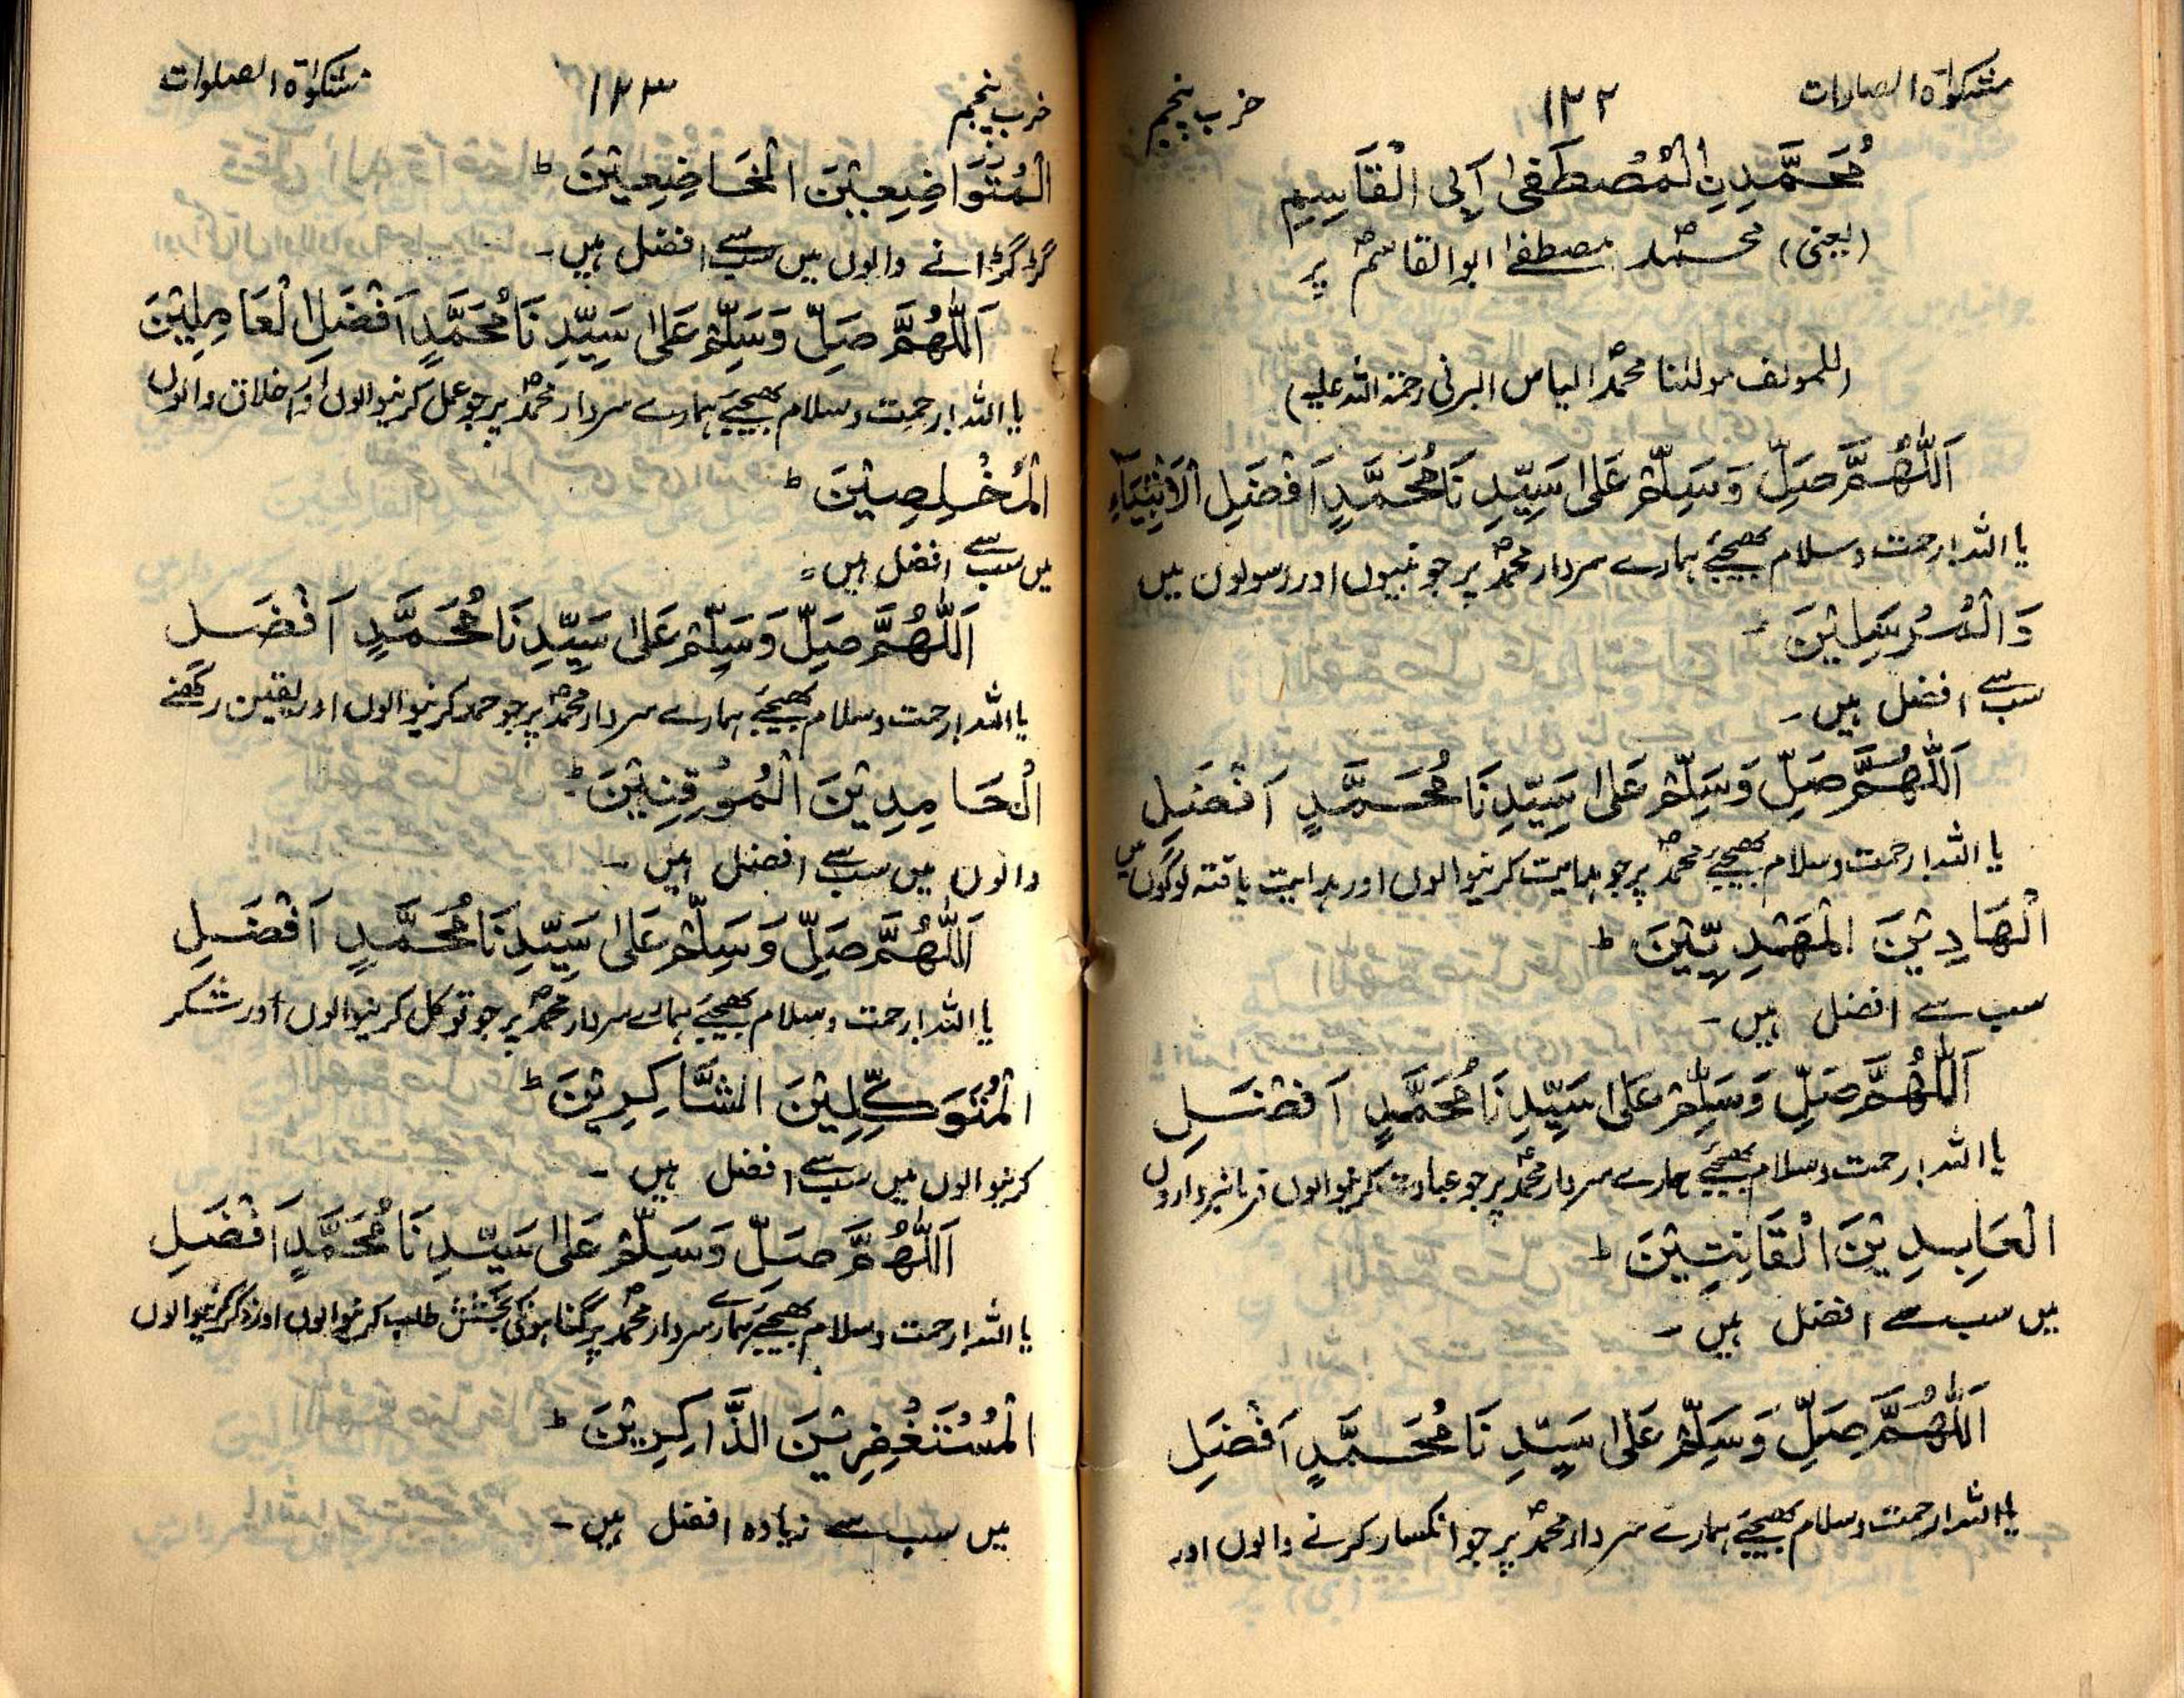 مشکوٰۃ الصلوات
۱۲۲
حزب پنجم
مُحَمَّدِنِ الْمُصْطَفٰی اَبِی الْقَاسِمِ
(یعنی) محمدؐ مصطفےٰ ابوالقاسمؐ پر
(للمولف مولٰنا محمدؐ الیاس البرنی رحمۃ اللہ علیہ)
اَللّٰهُمَّ صَلِّ وَسَلِّمْ عَلٰی سَيِّدِنَا مُحَمَّدٍ اَفْضَلِ الْاَنْبِيَآءِ
یا اللہ! رحمت و سلام بھیجئے ہمارے سردار محمدؐ پر جو نبیوں اور رسولوں میں
وَالْمُرْسَلِيْنَ ۔
سب سے افضل ہیں ۔
اَللّٰهُمَّ صَلِّ وَسَلِّمْ عَلٰی سَيِّدِنَا مُحَمَّدٍ اَفْضَلِ
یا اللہ! رحمت و سلام بھیجئے محمدؐ پر جو ہدایت کرنیوالوں اور ہدایت یافتہ لوگوں میں
الْهَادِيْنَ الْمَهْدِيِّيْنَ ط
سب سے افضل ہیں ۔
اَللّٰهُمَّ صَلِّ وَسَلِّمْ عَلٰی سَيِّدِنَا مُحَمَّدٍ اَفْضَلِ
یا اللہ! رحمت و سلام بھیجئے ہمارے سردار محمدؐ پر جو عبادت کرنیوالوں فرمانبرداروں
الْعَابِدِيْنَ الْقَانِتِيْنَ ط
میں سب سے افضل ہیں ۔
اَللّٰهُمَّ صَلِّ وَسَلِّمْ عَلٰی سَيِّدِنَا مُحَمَّدٍ اَفْضَلِ
یا اللہ! رحمت و سلام بھیجئے ہمارے سردار محمدؐ پر جو انکسار کرنے والوں اور
حزب پنجم
۱۲۳
مشکوٰۃ الصلوات
الْمُتَوَاضِعِيْنَ الْخَاضِعِيْنَ ط
گڑگڑانے والوں میں سب سے افضل ہیں ۔
اَللّٰهُمَّ صَلِّ وَسَلِّمْ عَلٰی سَيِّدِنَا مُحَمَّدٍ اَفْضَلِ الْعَامِلِيْنَ
یا اللہ! رحمت و سلام بھیجئے ہمارے سردار محمدؐ پر جو عمل کرنیوالوں اور اخلاق والوں
الْمُخْلِصِيْنَ ط
میں سب سے افضل ہیں ۔
اَللّٰهُمَّ صَلِّ وَسَلِّمْ عَلٰی سَيِّدِنَا مُحَمَّدٍ اَفْضَلِ
یا اللہ! رحمت و سلام بھیجئے ہمارے سردار محمدؐ پر جو حمد کرنیوالوں اور یقین رکھنے
الْحَامِدِيْنَ الْمُوْقِنِيْنَ ط
والوں میں سب سے افضل ہیں ۔
اَللّٰهُمَّ صَلِّ وَسَلِّمْ عَلٰی سَيِّدِنَا مُحَمَّدٍ اَفْضَلِ
یا اللہ! رحمت و سلام بھیجئے ہمارے سردار محمدؐ پر جو توکل کرنیوالوں اور شکر
الْمُتَوَكِّلِيْنَ الشَّاكِرِيْنَ ط
کرنیوالوں میں سب سے افضل ہیں ۔
اَللّٰهُمَّ صَلِّ وَسَلِّمْ عَلٰی سَيِّدِنَا مُحَمَّدٍ اَفْضَلِ
یا اللہ! رحمت و سلام بھیجئے ہمارے سردار محمدؐ پر گناہونکی بخشش طلب کرنیوالوں اور ذکر کرنیوالوں
الْمُسْتَغْفِرِيْنَ الذَّاكِرِيْنَ ط
میں سب سے زیادہ افضل ہیں ۔